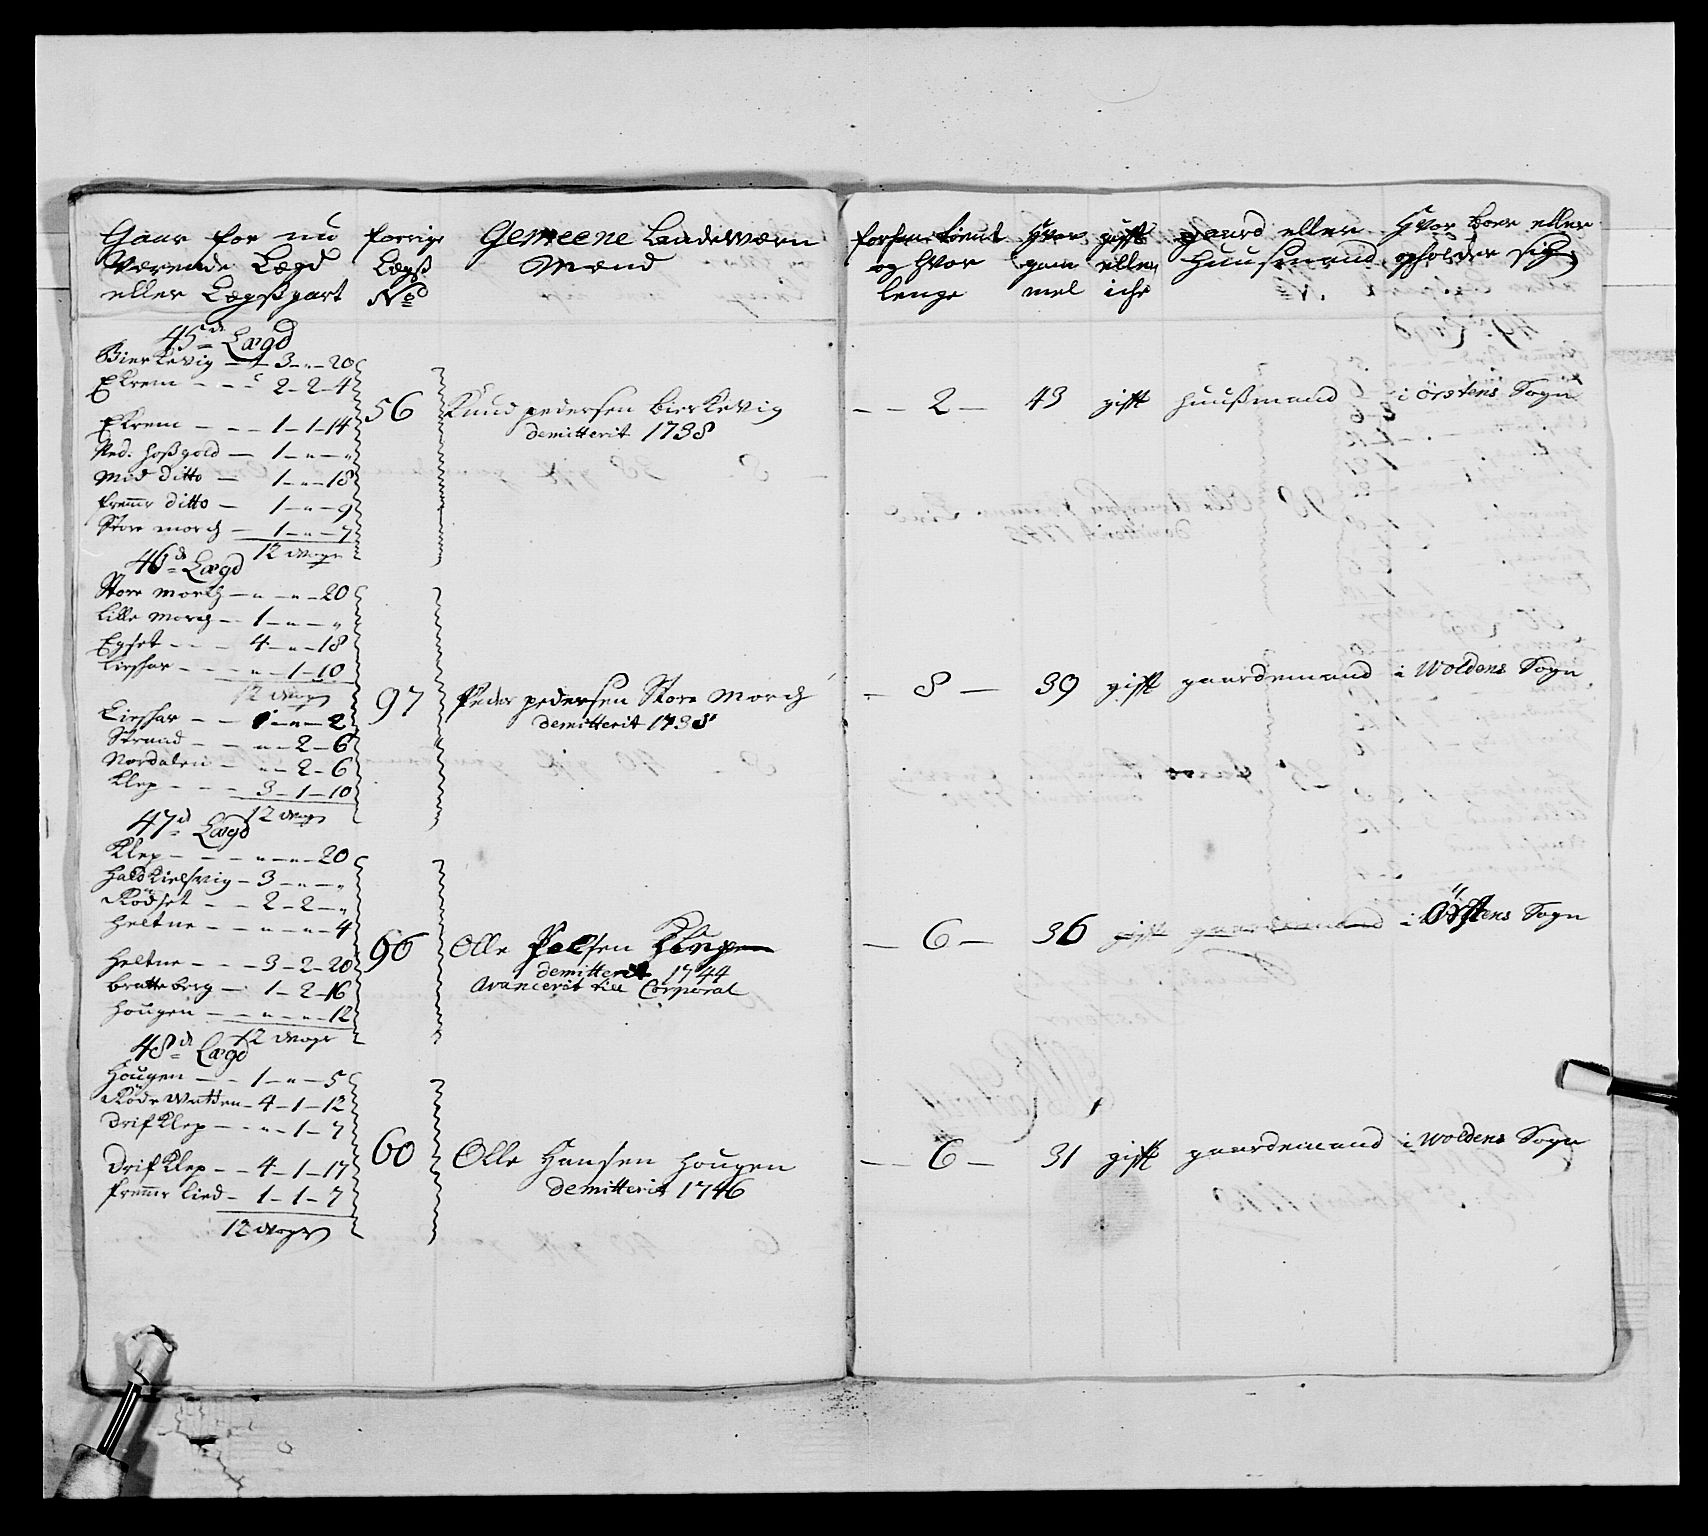 Gaar for nu
Værende Lægd
eller Lægßpart
forrige
Lægß
No
Gemeene Landeværn
Mænd
forhen tient
og hvor
lenge
Hvor
gam
mel
gift
eller
icke
gaard eller
Huusmand
Hvor boer eller
opholder sig
45de Lægd
Bierkevig — 3 - " - 20
Ekrem - - - 2 - 2 - 4
Ekrem - - - 1 - 1 - 14
Ned. hoßgold — 1 - " - "
Mid ditto — 1 - " - 18
fremr ditto — 1 - " - 9
Store morch — 1 - " - 7
12 Woger
56
Knud pedersen bierkevig
demitterit 1738
- - 2 - 43 gift huußmand i örstens Sogn
46de Lægd
Store morch - " - " - 20
Lille morch - 1 - " - "
Egset - - - 4 - " - 18
Lieshar - - - " - 1 - 10
12 Woger
Lieshar - - 1 - " - 2
Strand - - " - 2 - 6
Nordalen - " - 2 - 6
Klep - - - 3 - 1 - 10
12 Woger
97
Peder pedersen Store Morch
demitterit 1738
- 8 - 39 gift gaardemand i Woldens Sogn
47de Lægd
Klep - - - " - " - 20
Haldkielsvig - 3 - " - "
Rödset - - 2 - 2 - "
Heltne - - - " - " - 4
Heltne - - - 3 - 2 - 20
bratteberg - 1 - 2 - 16
Hougen - - " - " - 12
12 Woger
66
Olle Polsen Klepen
demitterit 1744
Avancerit till Corporal
- 6 - 36 gift gaardemand i Örstens Sogn
48de Lægd
Hougen - - 1 - " - 5
Röde Watten - 4 - 1 - 12
Drifklep - - " - 1 - 7
Drifklep - - 4 - 1 - 17
fremr Lied - 1 - 1 - 7
12 Woger
60
Olle Hansen Hougen
demitterit 1746
- - 6 - 31 gift gaardemand i Woldens Sogn